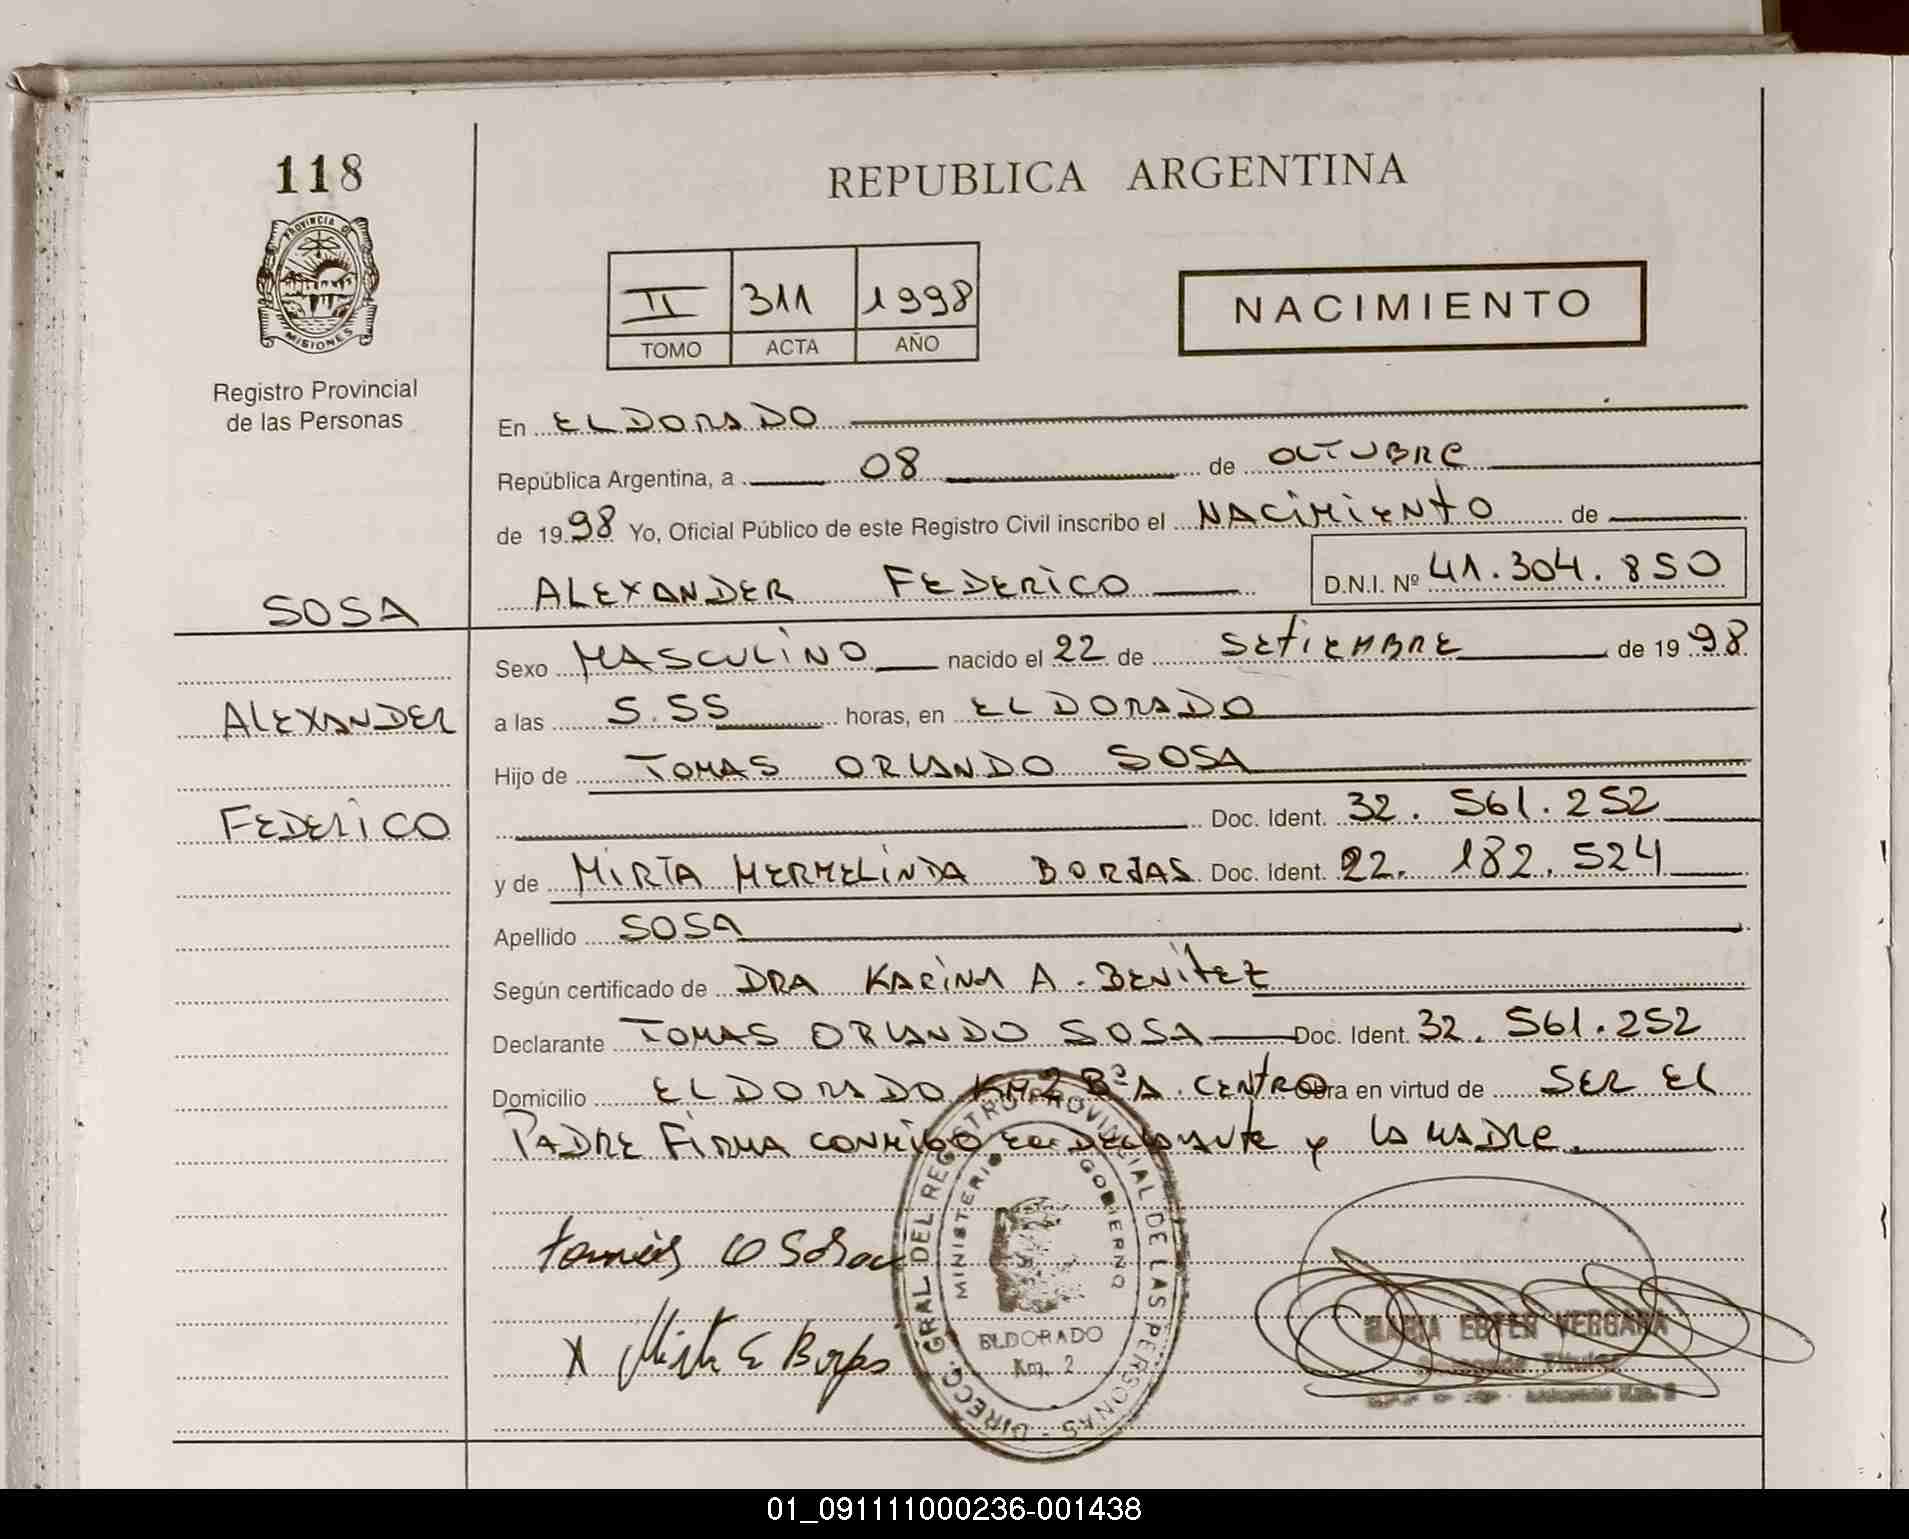 118
PROVINCIA DE
MISIONES
Registro Provincial
de las Personas
SOSA
ALEXANDER
FEDERICO
REPUBLICA ARGENTINA
II 311 1998
TOMO ACTA AÑO
NACIMIENTO
En ELDORADO
República Argentina, a 08 de OCTUBRE
de 1998 Yo, Oficial Público de este Registro Civil inscribo el NACIMIENTO de
ALEXANDER FEDERICO D.N.I. Nº 41.304.850
Sexo MASCULINO nacido el 22 de SETIEMBRE de 1998
a las 5.55 horas, en ELDORADO
Hijo de TOMAS ORLANDO SOSA
Doc. Ident. 32.561.252
y de MIRTA HERMELINDA BORJAS Doc. Ident. 22.182.524
Apellido SOSA
Según certificado de DRA KARINA A. BENITEZ
Declarante TOMAS ORLANDO SOSA Doc. Ident. 32.561.252
Domicilio ELDORADO KM 2 Bº A. CENTRO Obra en virtud de SER EL
PADRE FIRMA CONMIGO EL DECLARANTE y LA MADRE.
tomás O Sosa
X Mirta E Borjas
DIRECC. GRAL DEL REGISTRO PROVINCIAL DE LAS PERSONAS
MINISTERIO GOBIERNO
ELDORADO
Km. 2
MARIA ESTER VERGARA
Titular
01_091111000236-001438